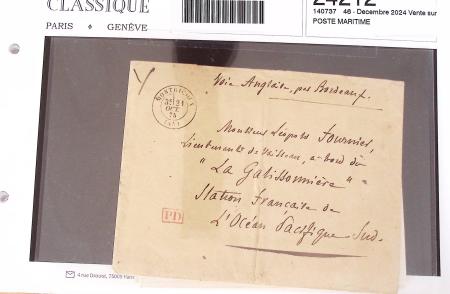 CLASSIQUE
PARIS ♦ GENÈVE
24212
140737 46 - Decembre 2024 Vente sur
POSTE MARITIME
Voie Anglaise, par Bordeaux.
21
OCT.
74
Monsieur Léopold Fournier,
Lieutenant de Vaisseau, à bord du
"La Galissonnière"
Station Française de
L'Océan Pacifique Sud.
PD
4 rue Drouot, 75009 Paris